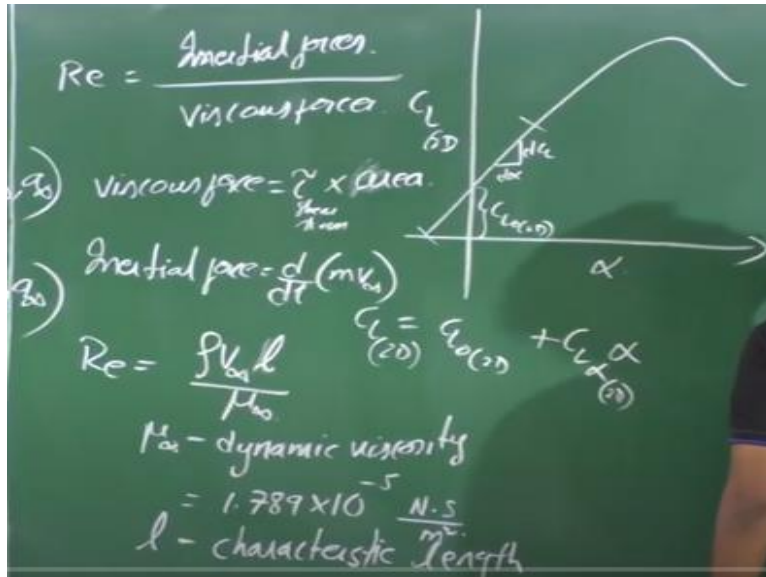 Re = Inertial forces.
Viscous forces.
q∞) Viscous force = τ × area.
shear
Inertial force = d/dt (mV∞)
Re = ρV∞ l
μ∞
μ∞ – dynamic viscosity
= 1.789×10⁻⁵ N·S
m².
l – characteristic length
C_L
(2D)
dC_L
dα
C_L₀(2D)
α
C_L (2D) = C_L₀(2D) + C_Lα (2D) α